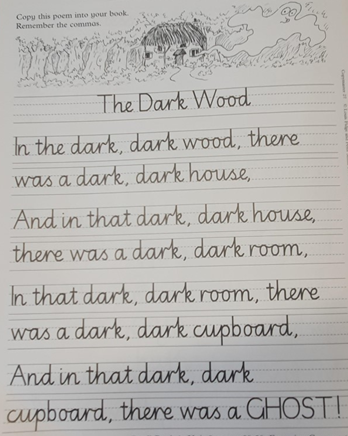 Copy this poem into your book.
Remember the commas.
The Dark Wood
In the dark, dark wood, there
was a dark, dark house,
And in that dark, dark house,
there was a dark, dark room,
In that dark, dark room, there
was a dark, dark cupboard,
And in that dark, dark
cupboard, there was a GHOST!